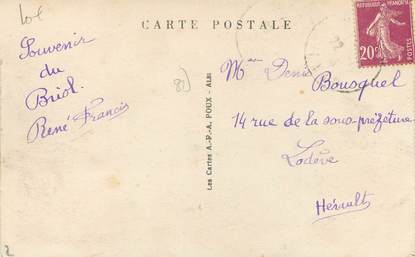 CARTE POSTALE
Souvenir
du
Briol.
René Francis
81
Les Cartes A.-P.-A. POUX - ALBI
Mme Denis
Bousquel
14 rue de la sous-préfecture
Lodève
Hérault
REPUBLIQUE FRANÇAISE
20c
POSTES
2